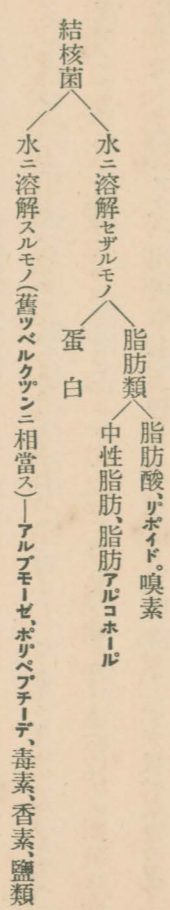 結核菌
水ニ溶解セザルモノ
脂肪類
脂肪酸、リポイド。嗅素
中性脂肪、脂肪アルコホール
蛋白
水ニ溶解スルモノ(舊ツベルクヅンニ相當ス)—アルブモーゼ、ポリペプチーデ、毒素、香素、鹽類